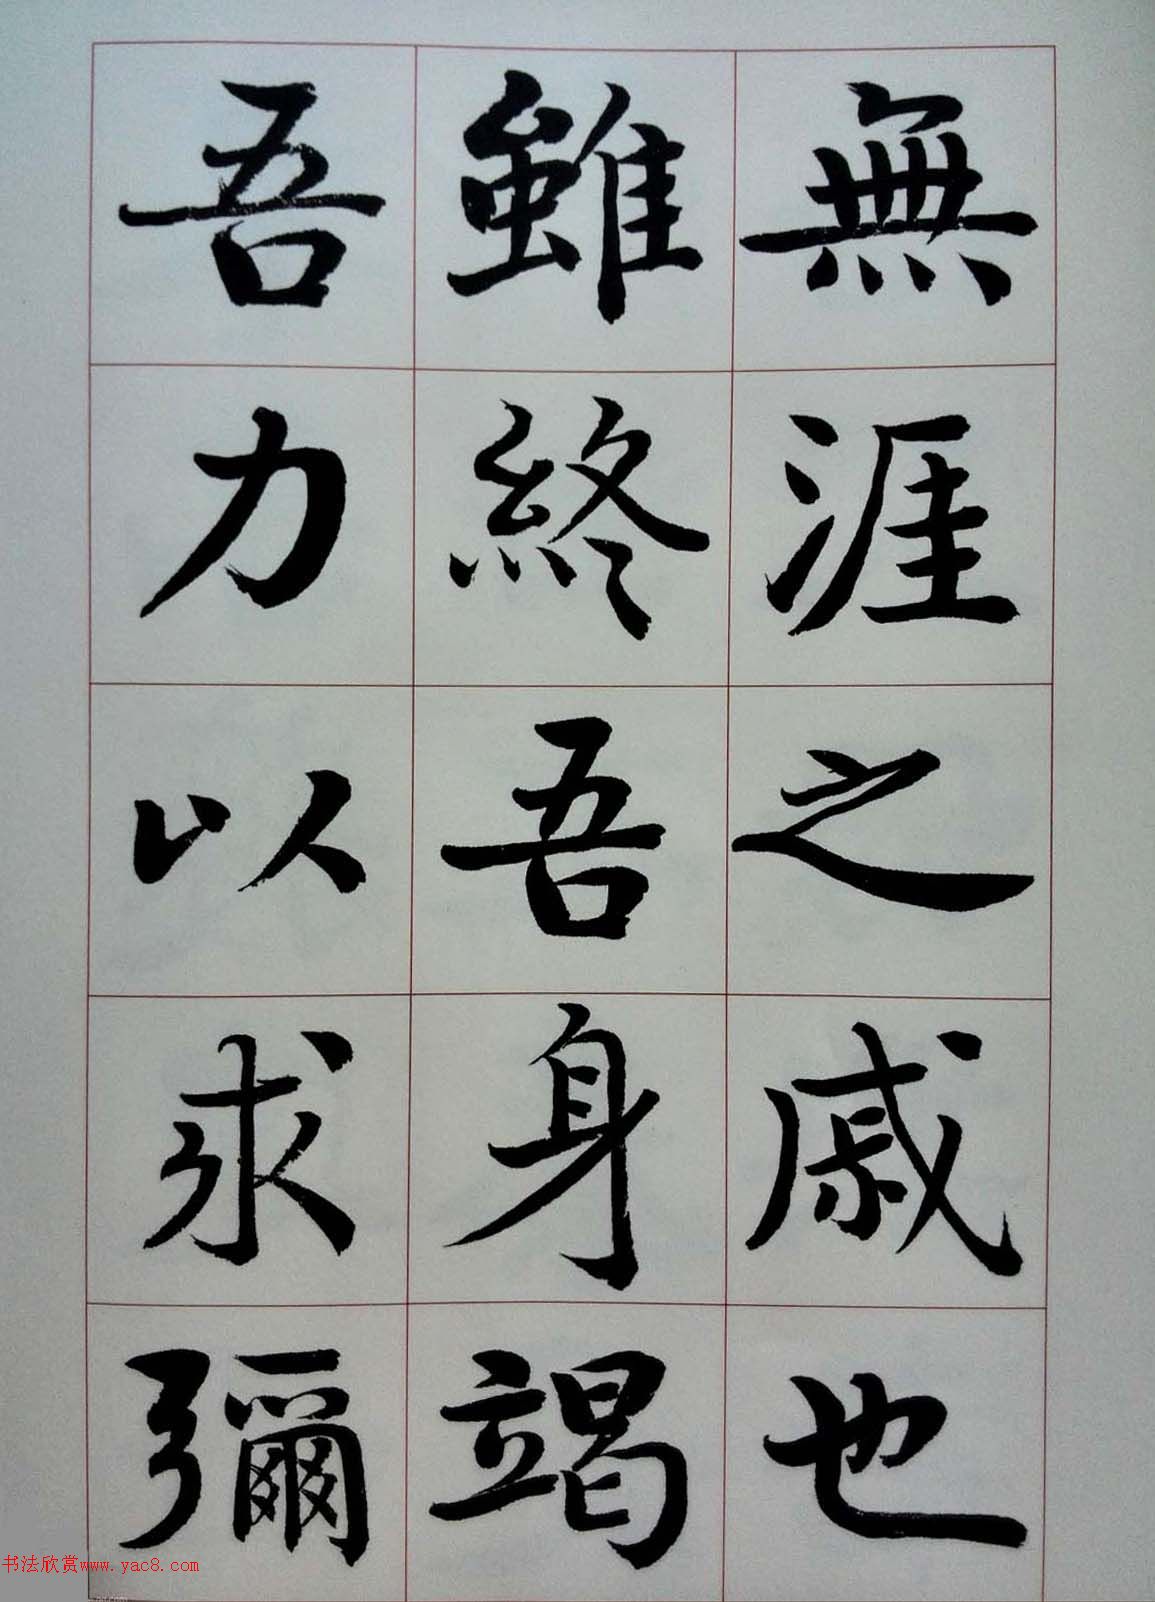 無涯之戚也
雖終吾身竭
吾力以求彌
书法欣赏www.yac8.com